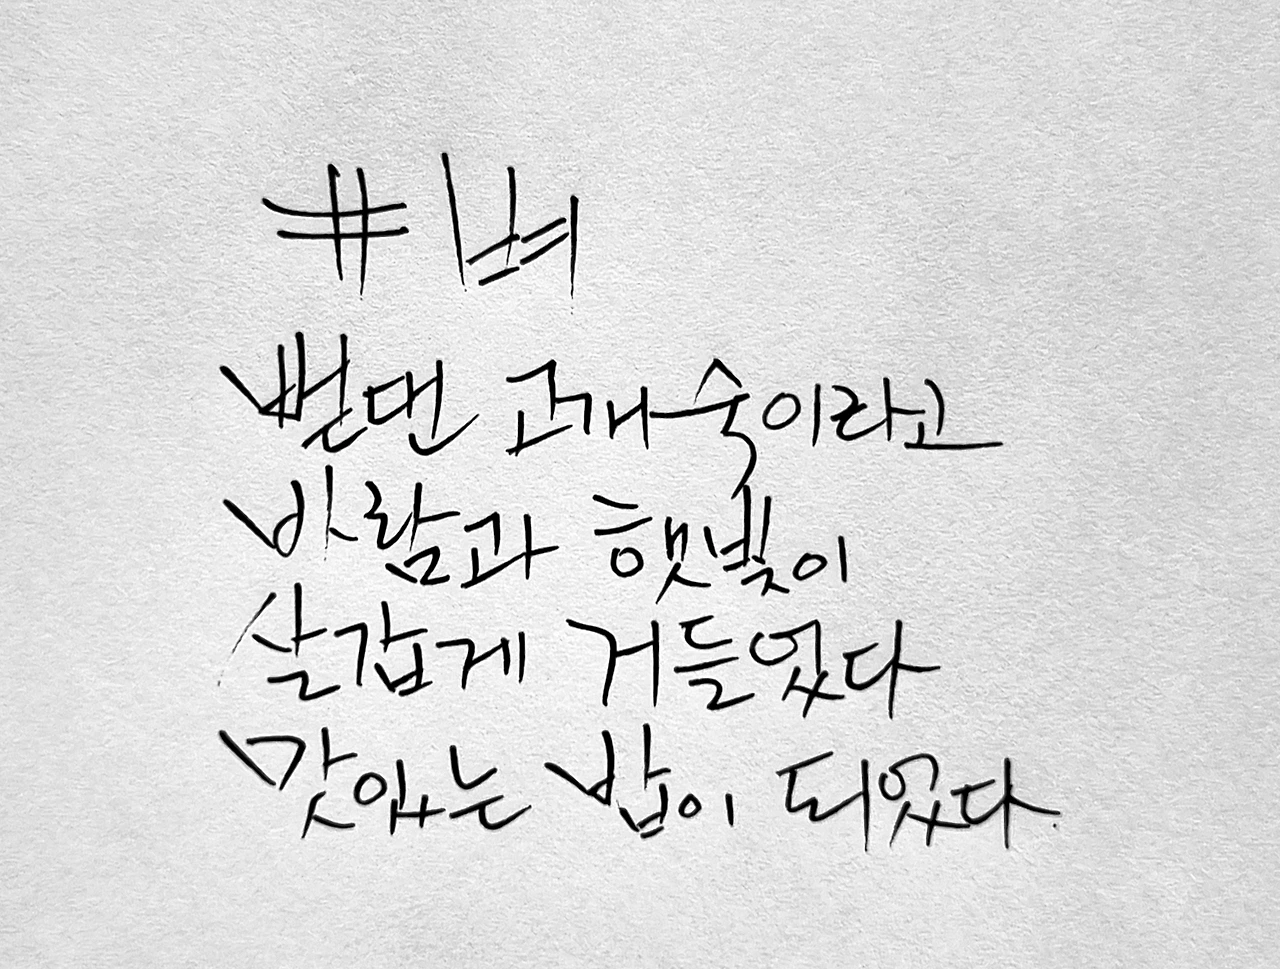 # 벼
뻗댄 고개 숙이라고
바람과 햇빛이
살갑게 거들었다
맛있는 밥이 되었다.